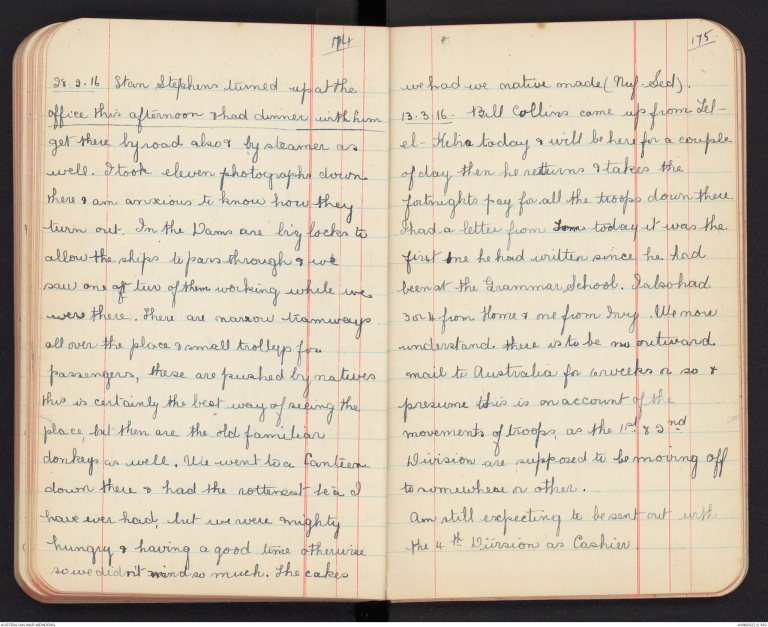 174
28.2.16 Stan Stephens turned up at the
office this afternoon & had dinner with him
get there by road also & by steamer as
well. I took eleven photographs down
there & am anxious to know how they
turn out. In the Dams are big locks to
allow the ships to pass through & we
saw one of two of them working while we
were there. There are narrow tramways
all over the place & small trolleys for
passengers, these are pushed by natives
this is certainly the best way of seeing the
place, but then are the old familiar
donkeys as well. We went to a Canteen
down there & had the rottenest tea I
have ever had, but we were mighty
hungry & having a good time otherwise
so we didn't mind so much. The cakes
175.
we had we native made (Nuf. Sed).
13.3.16. Bill Collins came up from Tel-
el-Kebir today & will be here for a couple
of day then he returns & takes the
fortnights pay for all the troops down there.
I had a letter from Tom today it was the
first one he had written since he had
been at the Grammar School. I also had
3 or 4 from Home & one from Ivy. We now
understand there is to be no outward
mail to Australia for 6 weeks or so &
presume this is on account of the
movements of troops, as the 1st & 2nd
Division are supposed to be moving off
to somewhere or other.
Am still expecting to be sent out with
the 4th Division as Cashier
AUSTRALIAN WAR MEMORIAL